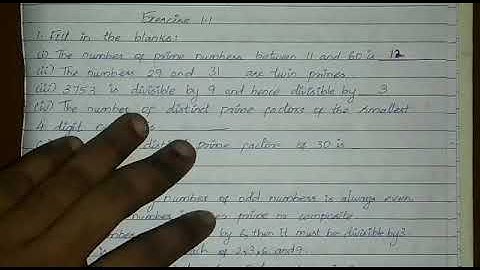 Exercise 1.1
1. Fill in the blanks:
(i) The number of prime numbers between 11 and 60 is 12
(ii) The numbers 29 and 31 are twin primes
(iii) 3753 is divisible by 9 and hence divisible by 3
(iv) The number of distinct prime factors of the smallest
4 digit
prime factor of 30 is
number of odd numbers is always even.
number prime nor composite.
by 6, then it must be divisible by 3.
each of 2, 3, 6 and 9.